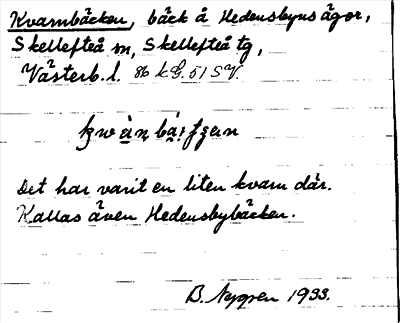 Kvarnbäcken, bäck å Hedensbyns ägor,
Skellefteå m, Skellefteå tg,
Västerb. l. 86 kG. 51 SV.
Det har varit en liten kvarn där.
Kallas även Hedensbybäcken.
B. Nygren 1933.